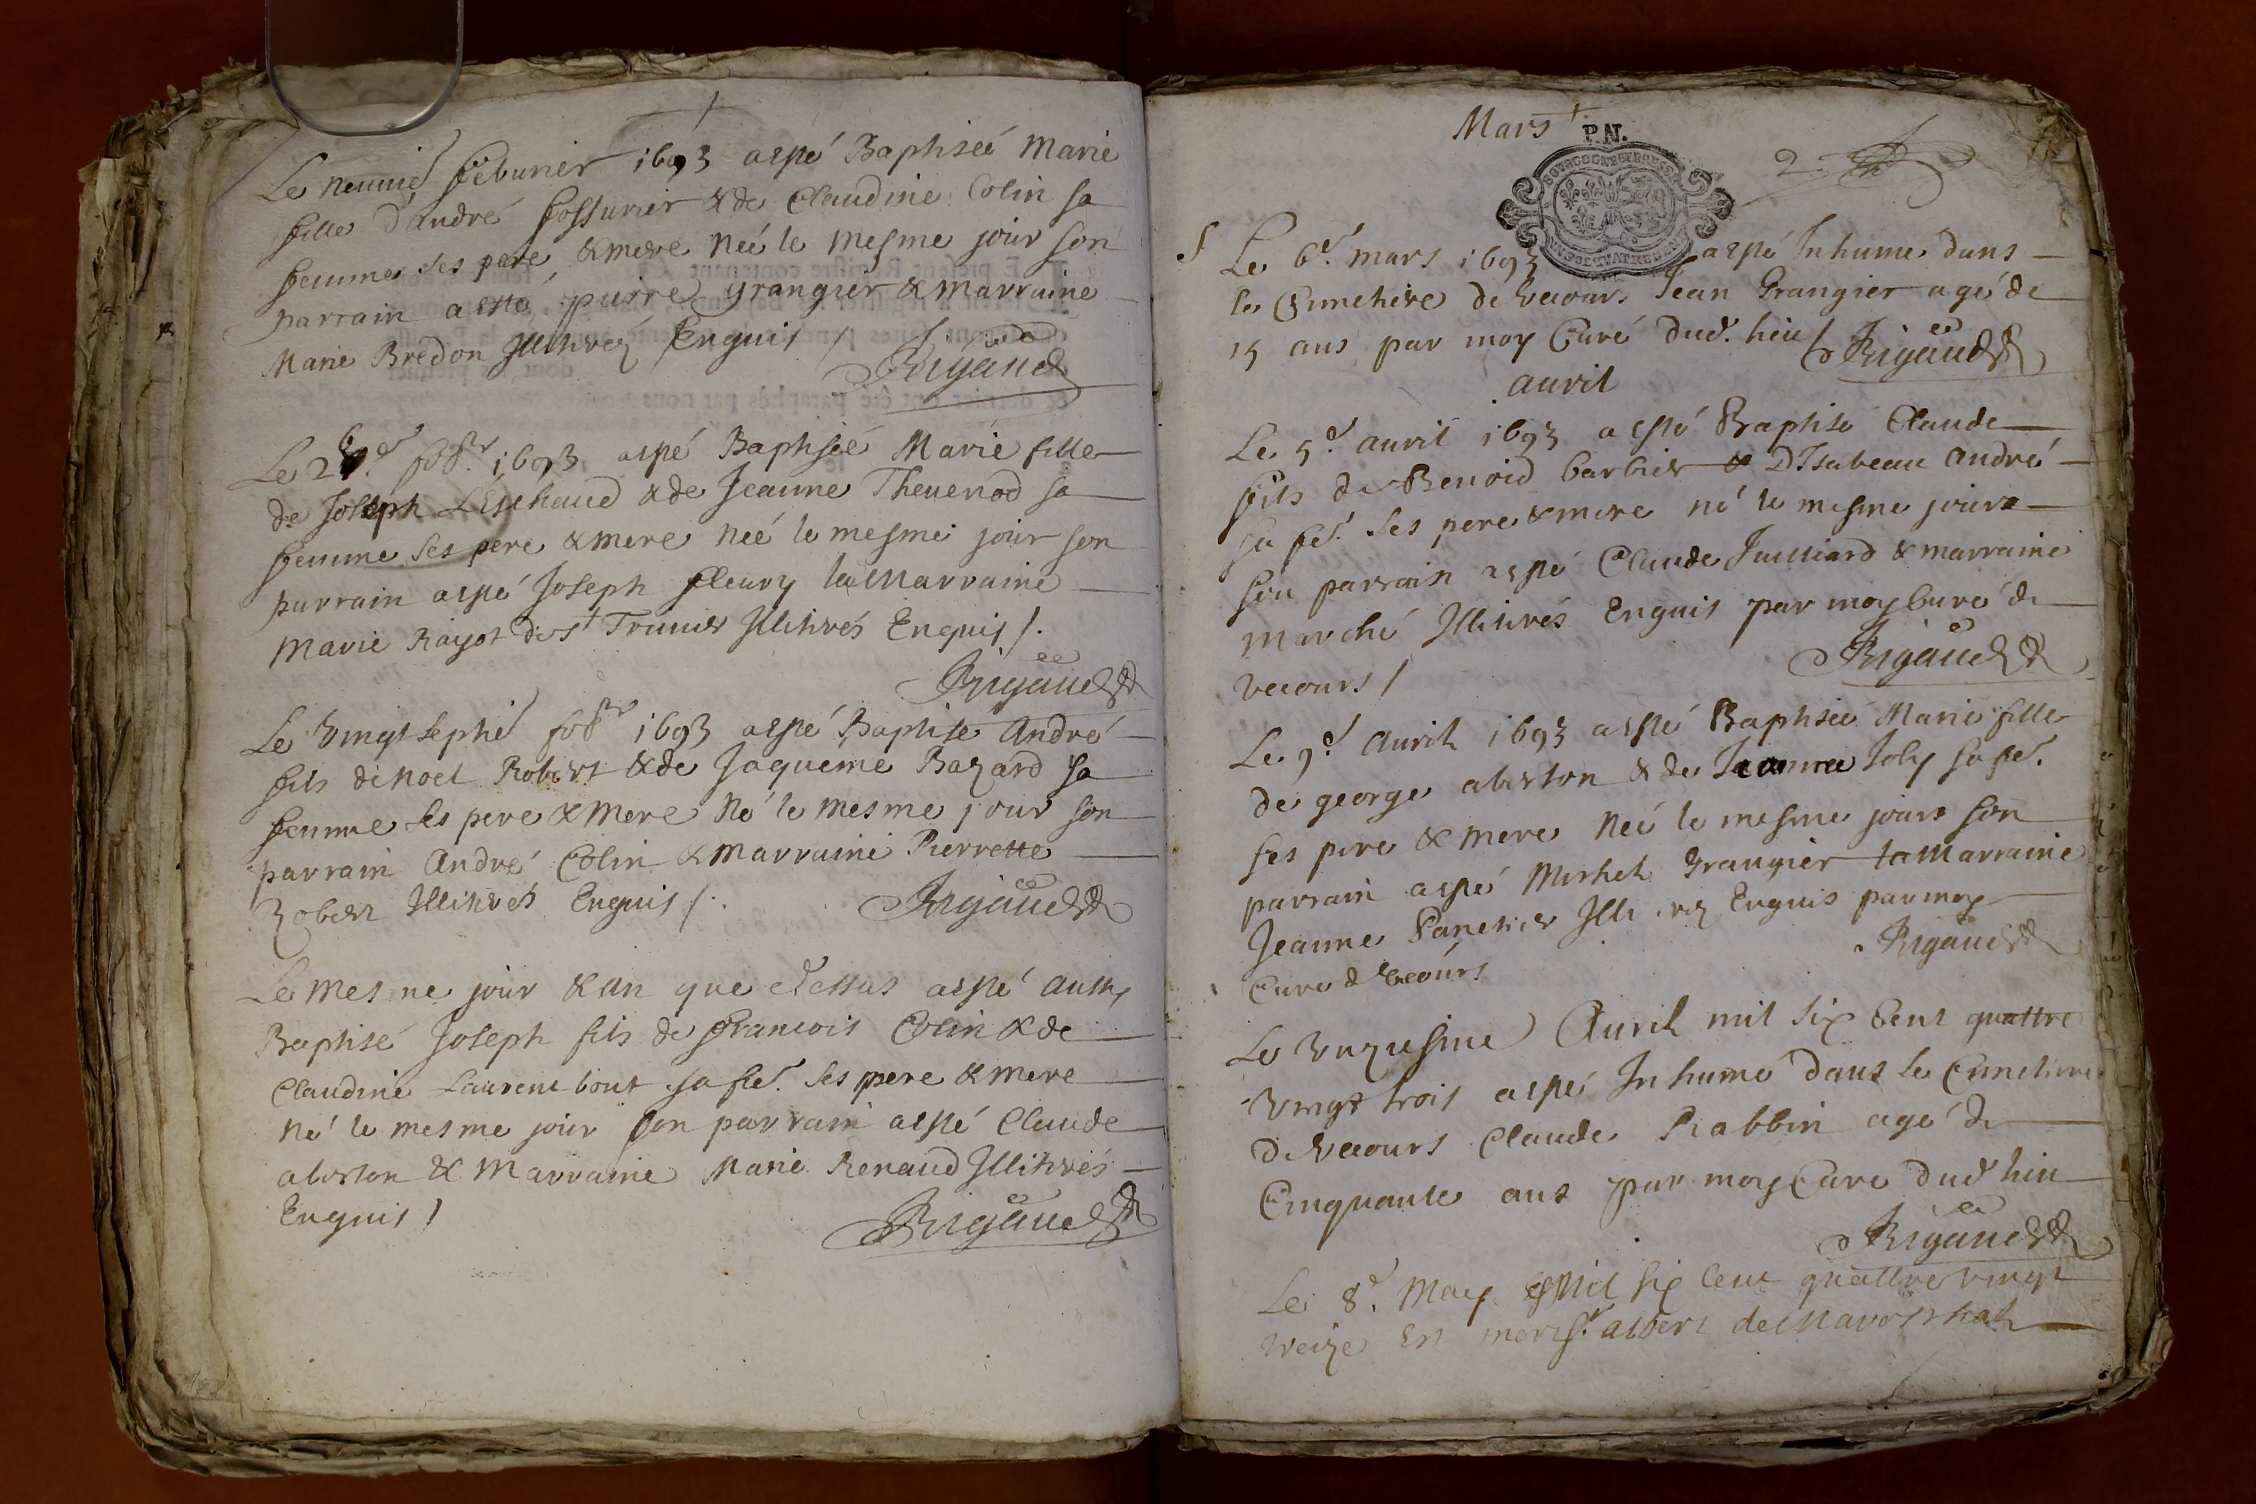 Le neuvié febvrier 1693 a esté Baptiseé Marie
fille d'andré fossurier & de Claudine Colin sa
femme ses pere & mere neé le mesme jour son
parrain a esté pierre grangier & marraine
Marie Bredon Illitirez Enquis /
Rigaud
Le 26e febr 1693 a esté Baptiseé Marie fille
de Joseph Leschaud & de Jeanne Thevenod sa
femme ses pere & mere neé le mesme jour son
parrain a esté Joseph fleury la Marraine
Marie Rayot de st Trivier Illitirés Enquis /.
Rigaud
Le vingt septié febr 1693 a esté Baptise André
fils de Noel Robert & de Jaqueme Bazard sa
femme ses pere & mere né le mesme jour son
parrain André Colin & marraine Pierrette
Robert Illitirés Enquis /.
Rigaud
Le mesme jour & an que dessus a esté aussy
Baptisé Joseph fils de François Colin & de
Claudine Laurent bout sa fe. ses pere & mere
né le mesme jour son parrain a esté Claude
aberton & Marraine Marie Renaud Illitirés
Enquis /
Rigaud
Mars
P.N.
2
Le 6e mars 1693 a esté Inhumé dans
le Cimetiere de Vecours Jean Grangier agé de
15 ans par moy Curé dud. lieu /
Rigaud
avril
Le 5e avril 1693 a esté Baptisé Claude
fils de Benoid barbier & D'Isabeau André
sa fe. ses pere & mere né le mesme jour
son parrain a esté Claude Juilliard & marraine
marché Illitirés Enquis par moy Curé de
Vecours /
Rigaud
Le 9e avril 1693 a esté Baptiseé Marie fille
de george aberton & de Jeanne Joly sa fe.
ses pere & mere neé le mesme jour son
parrain a esté Michel Grangier la Marraine
Jeanne Panetier Enquis par moy
Curé de Vecours
Rigaud
Le Unzieme Avril mil six Cent quattre
vingt trois a esté Inhumé dans le Cimetiere
de Vecours Claude Rabbin agé de
Cinquante ans par moy Curé dud lieu
Rigaud
Le 8e. May Mil six Cent quattre vingt
treize Est mort sr. albert de